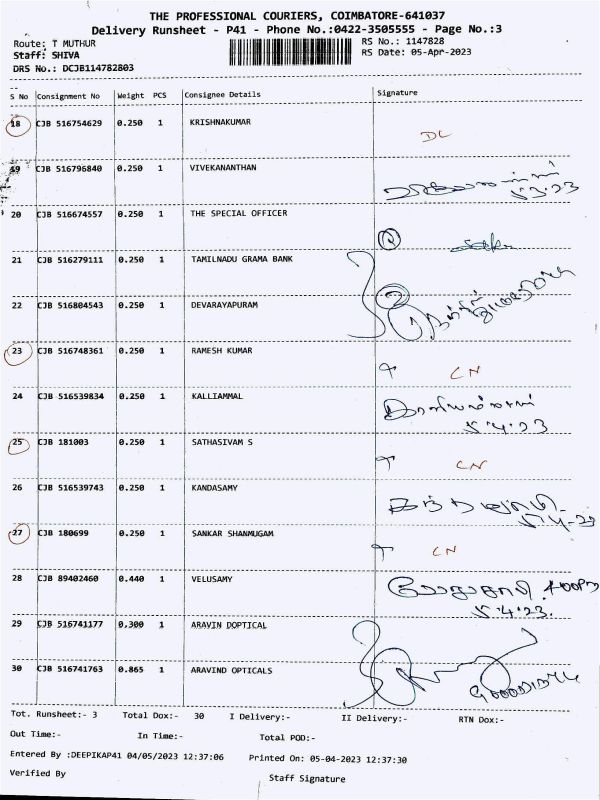 THE PROFESSIONAL COURIERS, COIMBATORE-641037
Delivery Runsheet - P41 - Phone No.:0422-3505555 - Page No.:3
Route: T MUTHUR
RS No.: 1147828
Staff: SHIVA
RS Date: 05-Apr-2023
DRS No.: DCJB114782803
S No Consignment No Weight PCS Consignee Details Signature
18 CJB 516754629 0.250 1 KRISHNAKUMAR DL
19 CJB 516796840 0.250 1 VIVEKANANTHAN
20 CJB 516674557 0.250 1 THE SPECIAL OFFICER
21 CJB 516279111 0.250 1 TAMILNADU GRAMA BANK
22 CJB 516804543 0.250 1 DEVARAYAPURAM
23 CJB 516748361 0.250 1 RAMESH KUMAR CN
24 CJB 516539834 0.250 1 KALLIAMMAL
25 CJB 181003 0.250 1 SATHASIVAM S CN
26 CJB 516539743 0.250 1 KANDASAMY
27 CJB 180699 0.250 1 SANKAR SHANMUGAM CN
28 CJB 89402460 0.440 1 VELUSAMY
29 CJB 516741177 0.300 1 ARAVIN DOPTICAL
30 CJB 516741763 0.865 1 ARAVIND OPTICALS
Tot. Runsheet:- 3 Total Dox:- 30 I Delivery:- II Delivery:- RTN Dox:-
Out Time:- In Time:- Total POD:-
Entered By :DEEPIKAP41 04/05/2023 12:37:06 Printed On: 05-04-2023 12:37:30
Verified By
Staff Signature